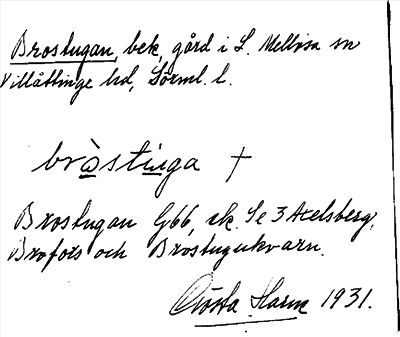 Brostugan, bek, gård i L. Mellösa sn
Villåttinge hd, Sörml. l.
bròstuga †
Brostugan G66, ek. Se 3 Axelsberg,
Brofors och Brostugukvarn.
Gösta Harm 1931.